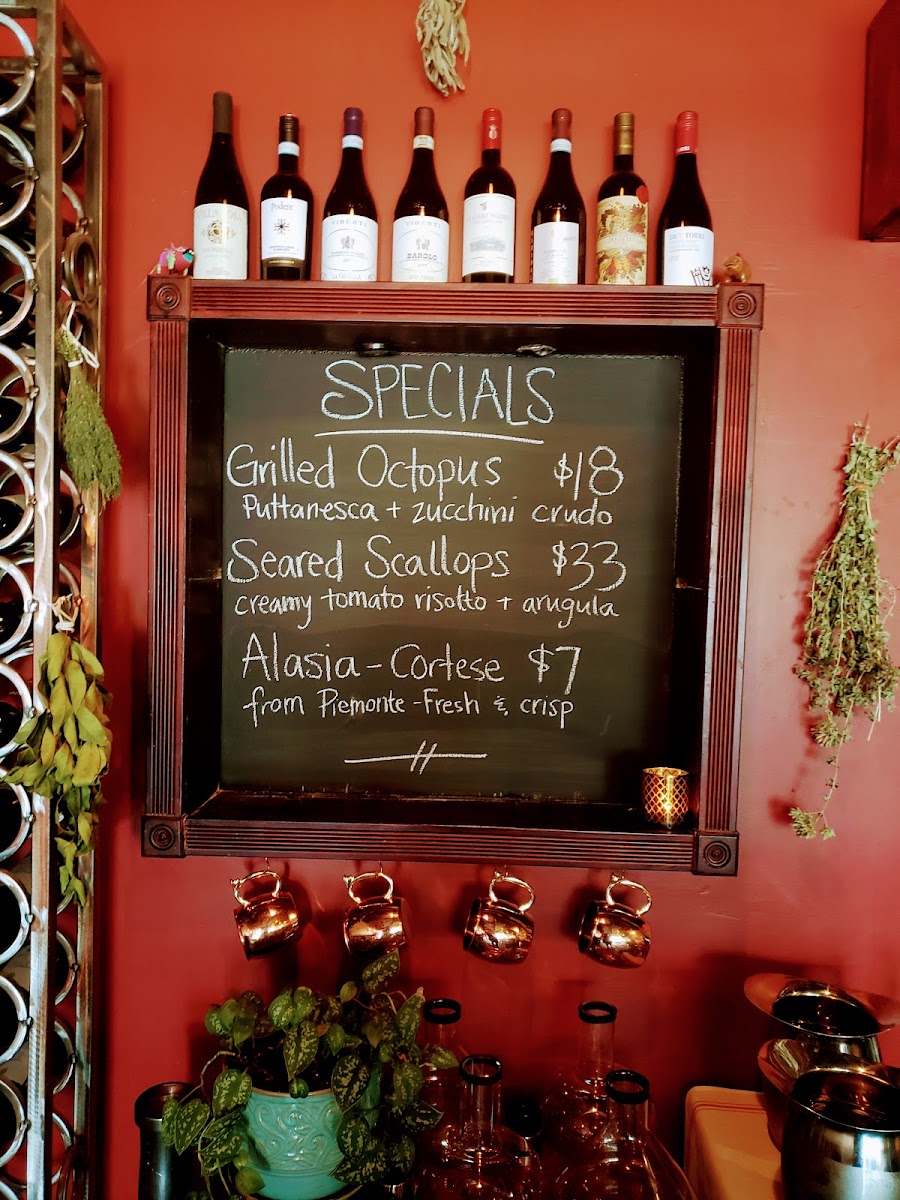 Podere
VIBERTI
VIBERTI
BAROLO
SPECIALS
Grilled Octopus $18
Puttanesca + zucchini crudo
Seared Scallops $33
creamy tomato risotto + arugula
Alasia - Cortese $7
from Piemonte - Fresh & crisp